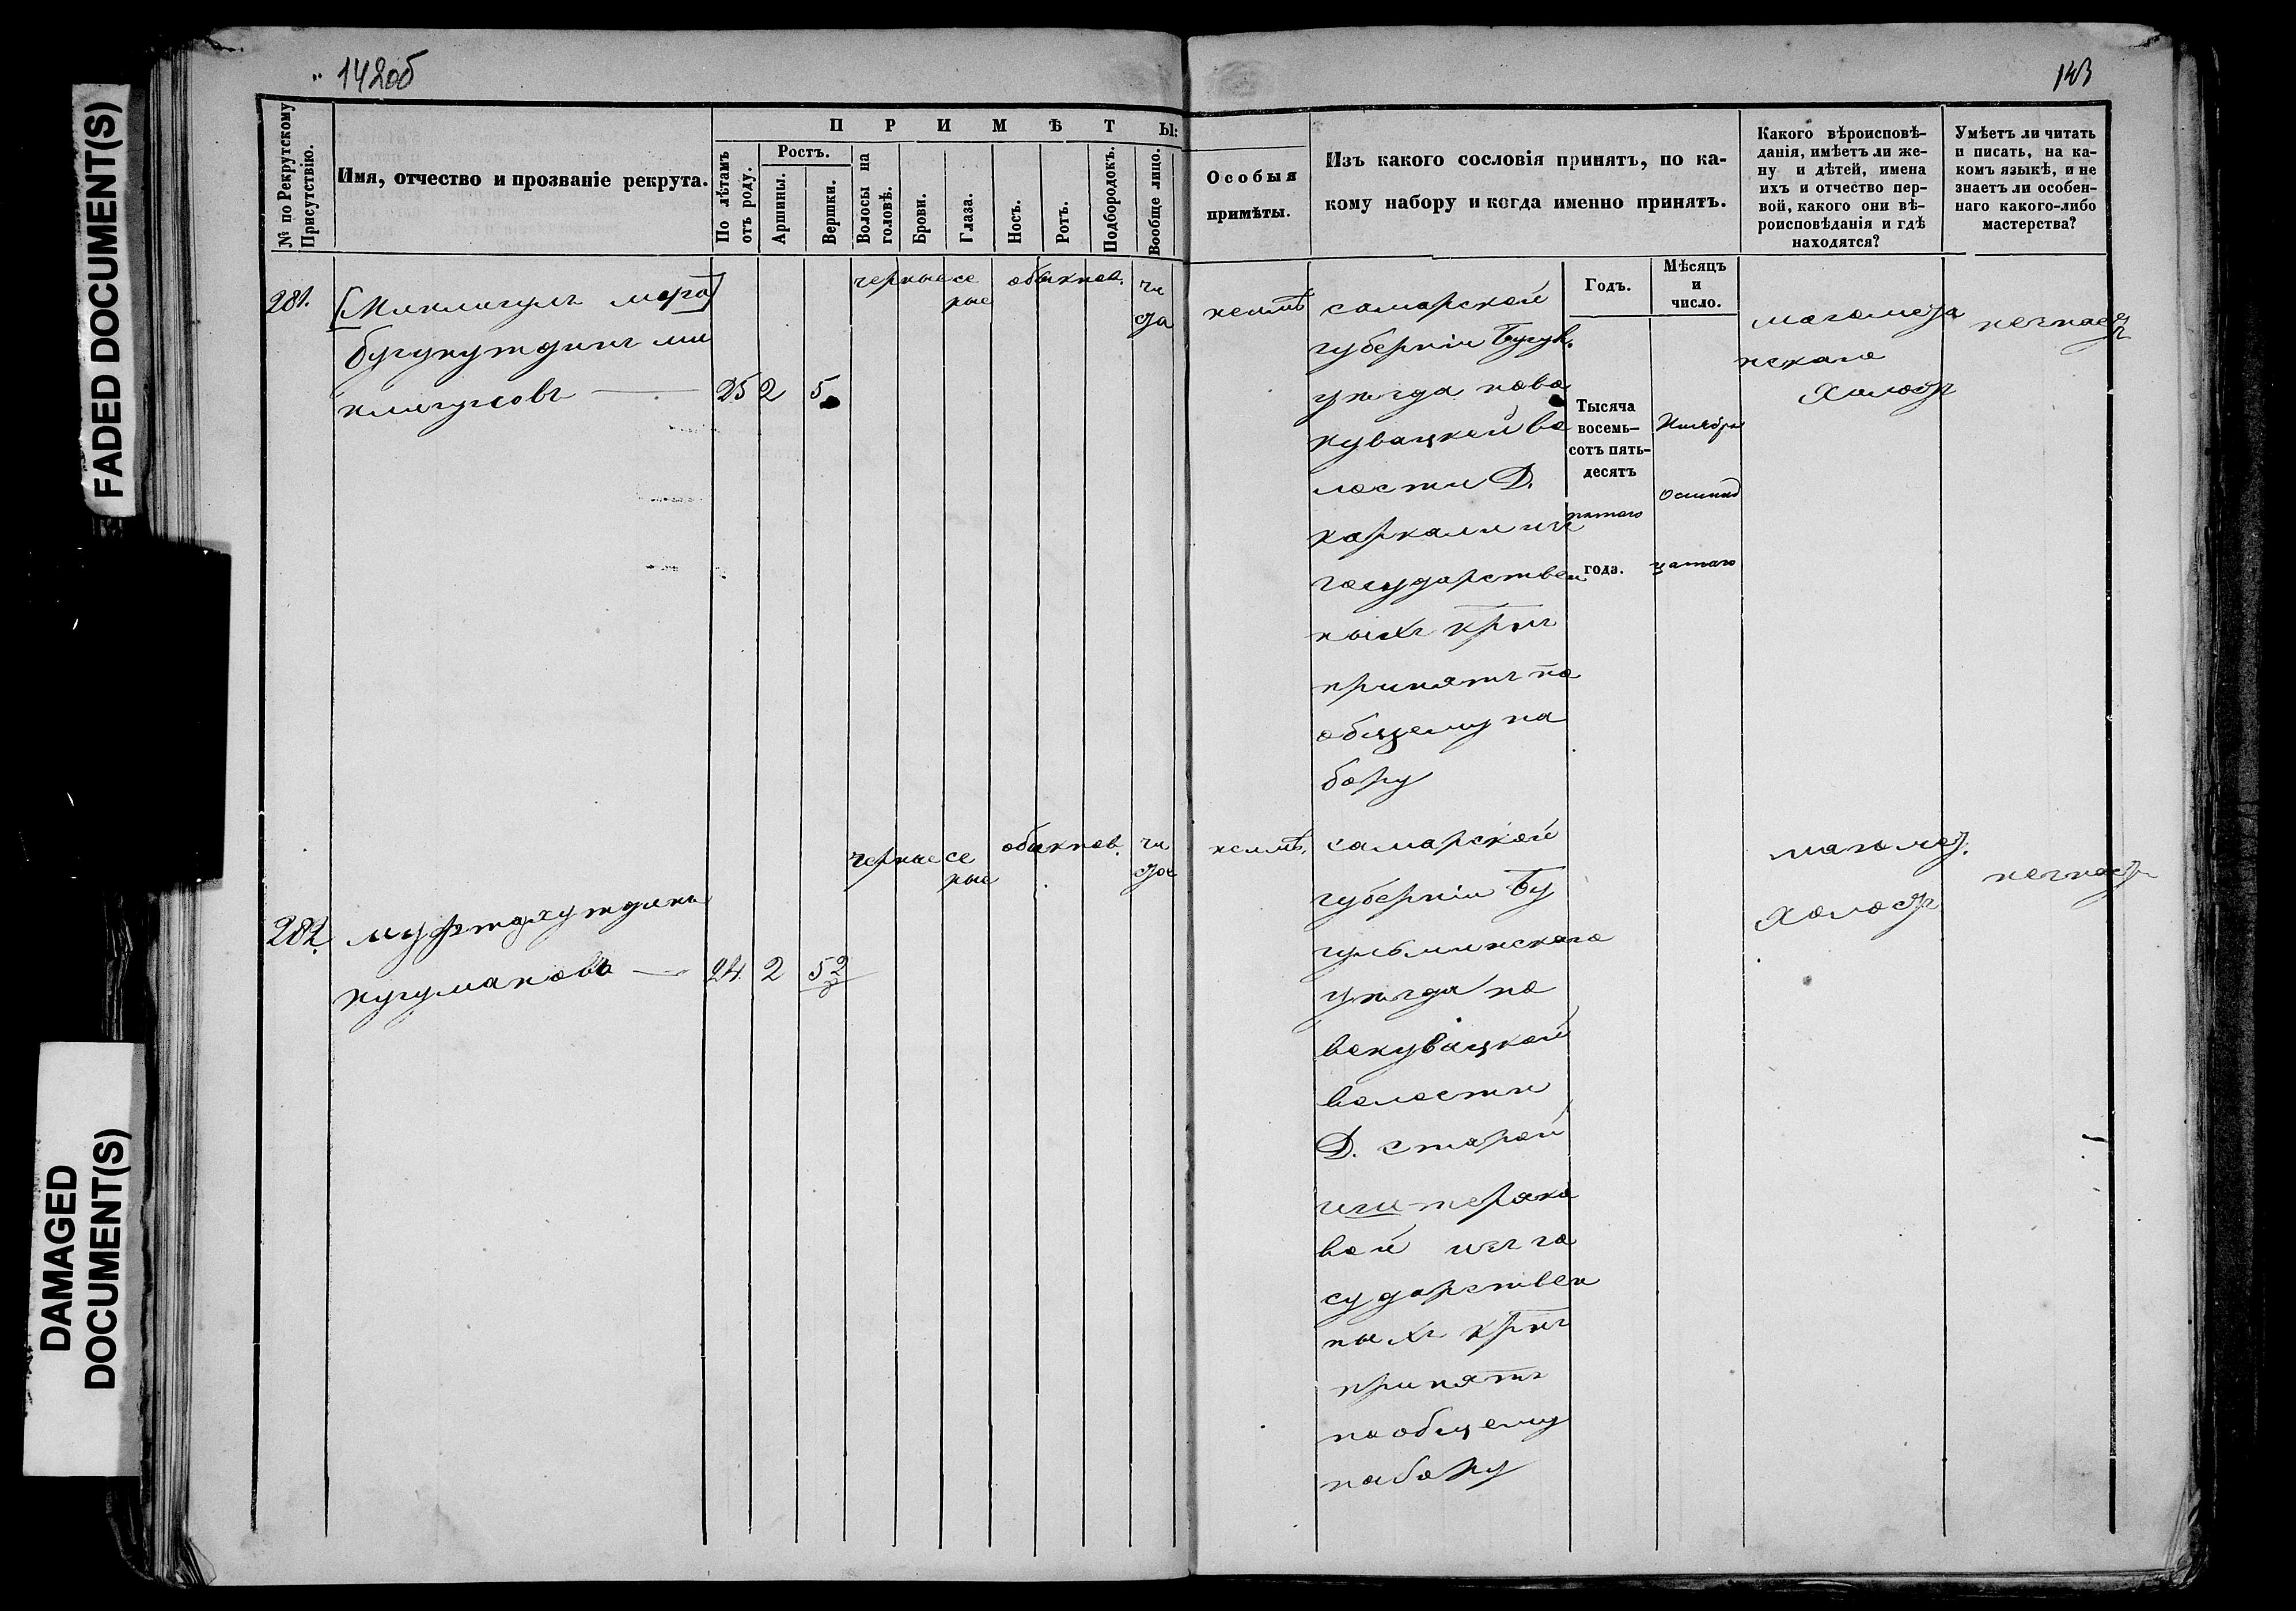 FADED DOCUMENT(S)
DAMAGED
DOCUMENT(S)
142об
143
№ по Рекрутскому
Присутствію.
Имя, отчество и прозваніе рекрута.
ПРИМѢТЫ:
По лѣтамъ
отъ роду.
Ростъ.
Аршины.
Вершки.
Волосы на
головѣ.
Брови.
Глаза.
Носъ.
Ротъ.
Подбородокъ.
Вообще лицо.
Особыя
примѣты.
Изъ какого сословія принятъ, по ка-
кому набору и когда именно принятъ.
Какого вѣроисповѣ-
данія, имѣетъ ли же-
ну и дѣтей, имена
ихъ и отчество пер-
вой, какого они вѣ-
роисповѣданія и гдѣ
находятся?
Умѣетъ ли читать
и писать, на ка-
комъ языкѣ, и не
знаетъ ли особен-
наго какого-либо
мастерства?
Годъ.
Мѣсяцъ
и
число.
281.
25 2 5
черные
се
рые
обыкнов.
чи
ста
неимѣ
самарской
губерніи Бугул.
уезда ново
кувацкой во
лости Д.
государствен
ныхъ крест
принятъ по
общему на
бору
Тысяча
восемь-
сотъ пять-
десятъ
пятаго
года.
Ноября
осьмнад
цатаго
магомета
нскаго
холостъ
незнаетъ
282.
нугумановъ
24. 2 5 2/8
черные
се
рые
обыкнов.
чи
стое
неимѣ.
самарской
губерніи Бу
гульминскаго
уезда но
вокувацкой
волости
Д. старой
вой изъ го
сударствен
ныхъ крест
принятъ
по общему
набору
магомет.
холостъ
незнаетъ